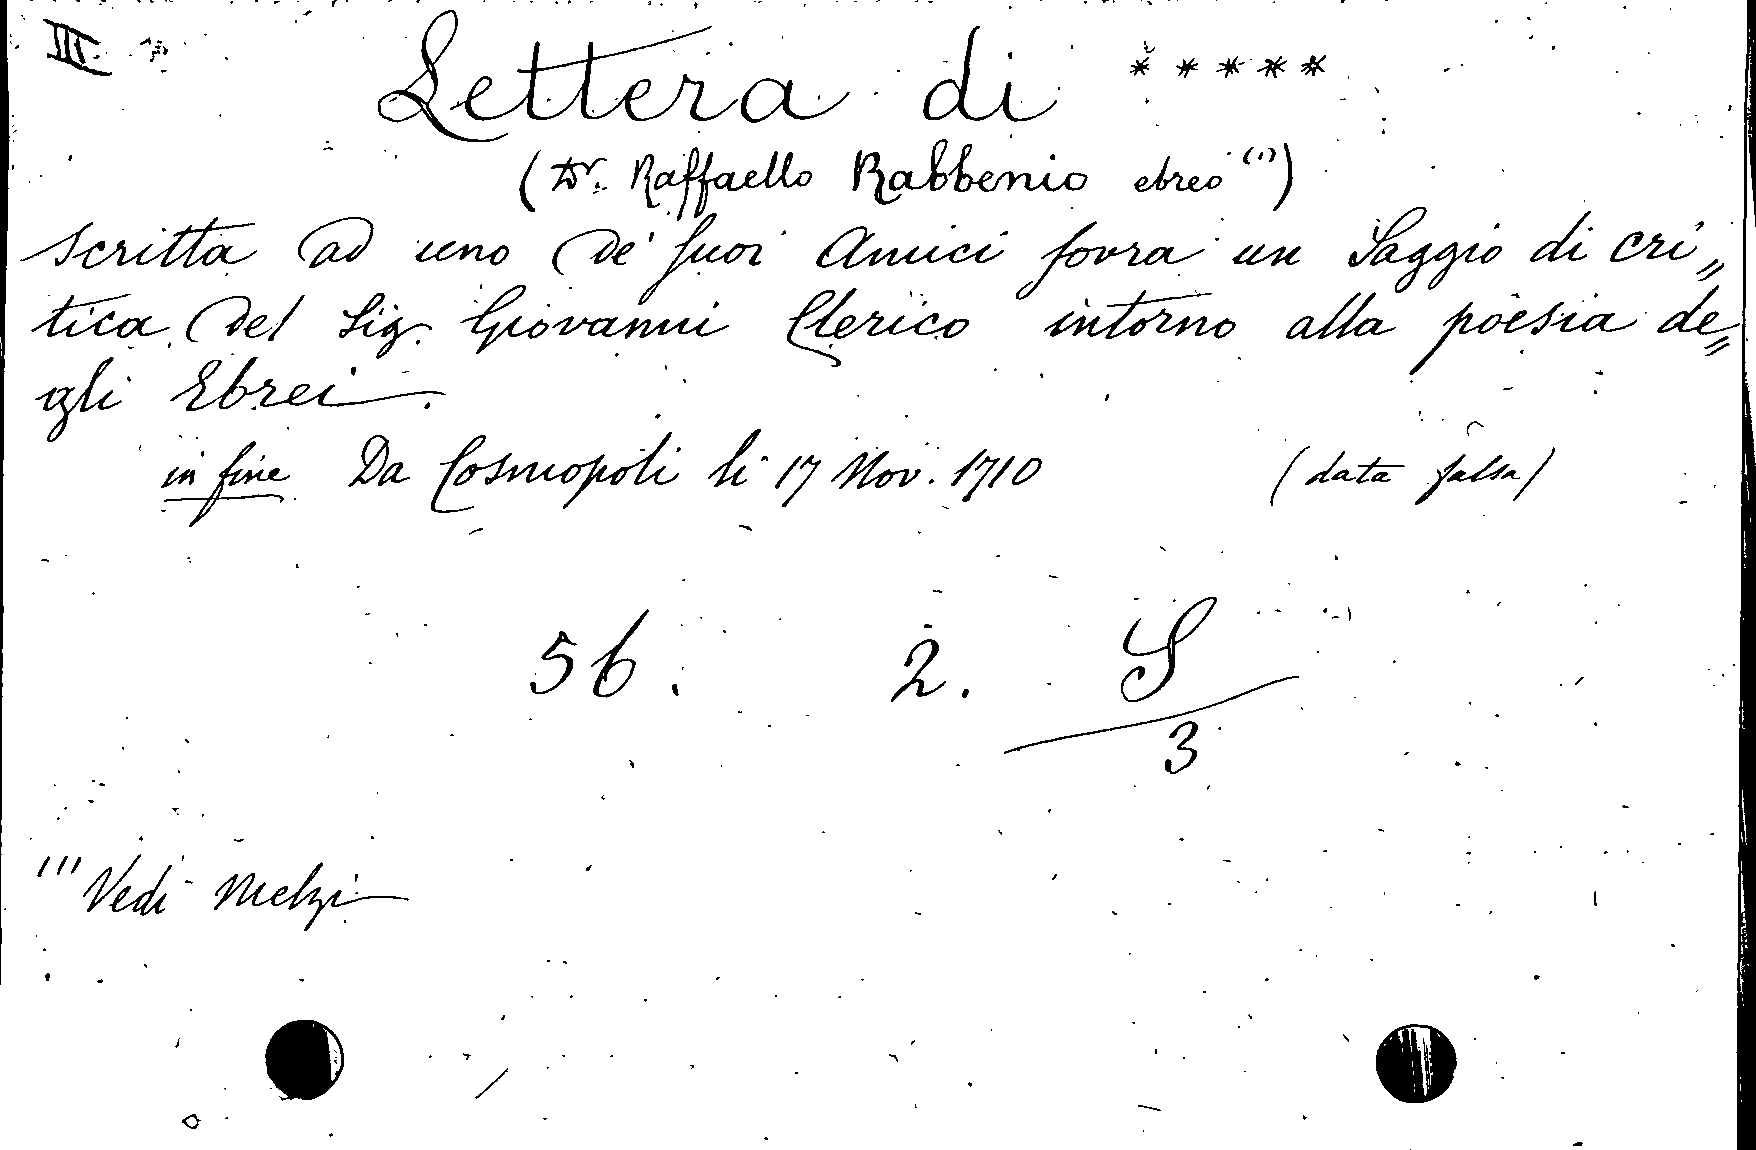 III.
Lettera di *****
(Dr. Raffaello Rabbenio ebreo (1))
scritta ad uno de' suoi Amici sovra un Saggio di cri„
tica del Sig. Giovanni Clerico intorno alla poesia de„
gli Ebrei.
in fine Da Cosmopoli li 17 Nov. 1710 (data falsa)
56. 2. S
3
(1) Vedi Melzi